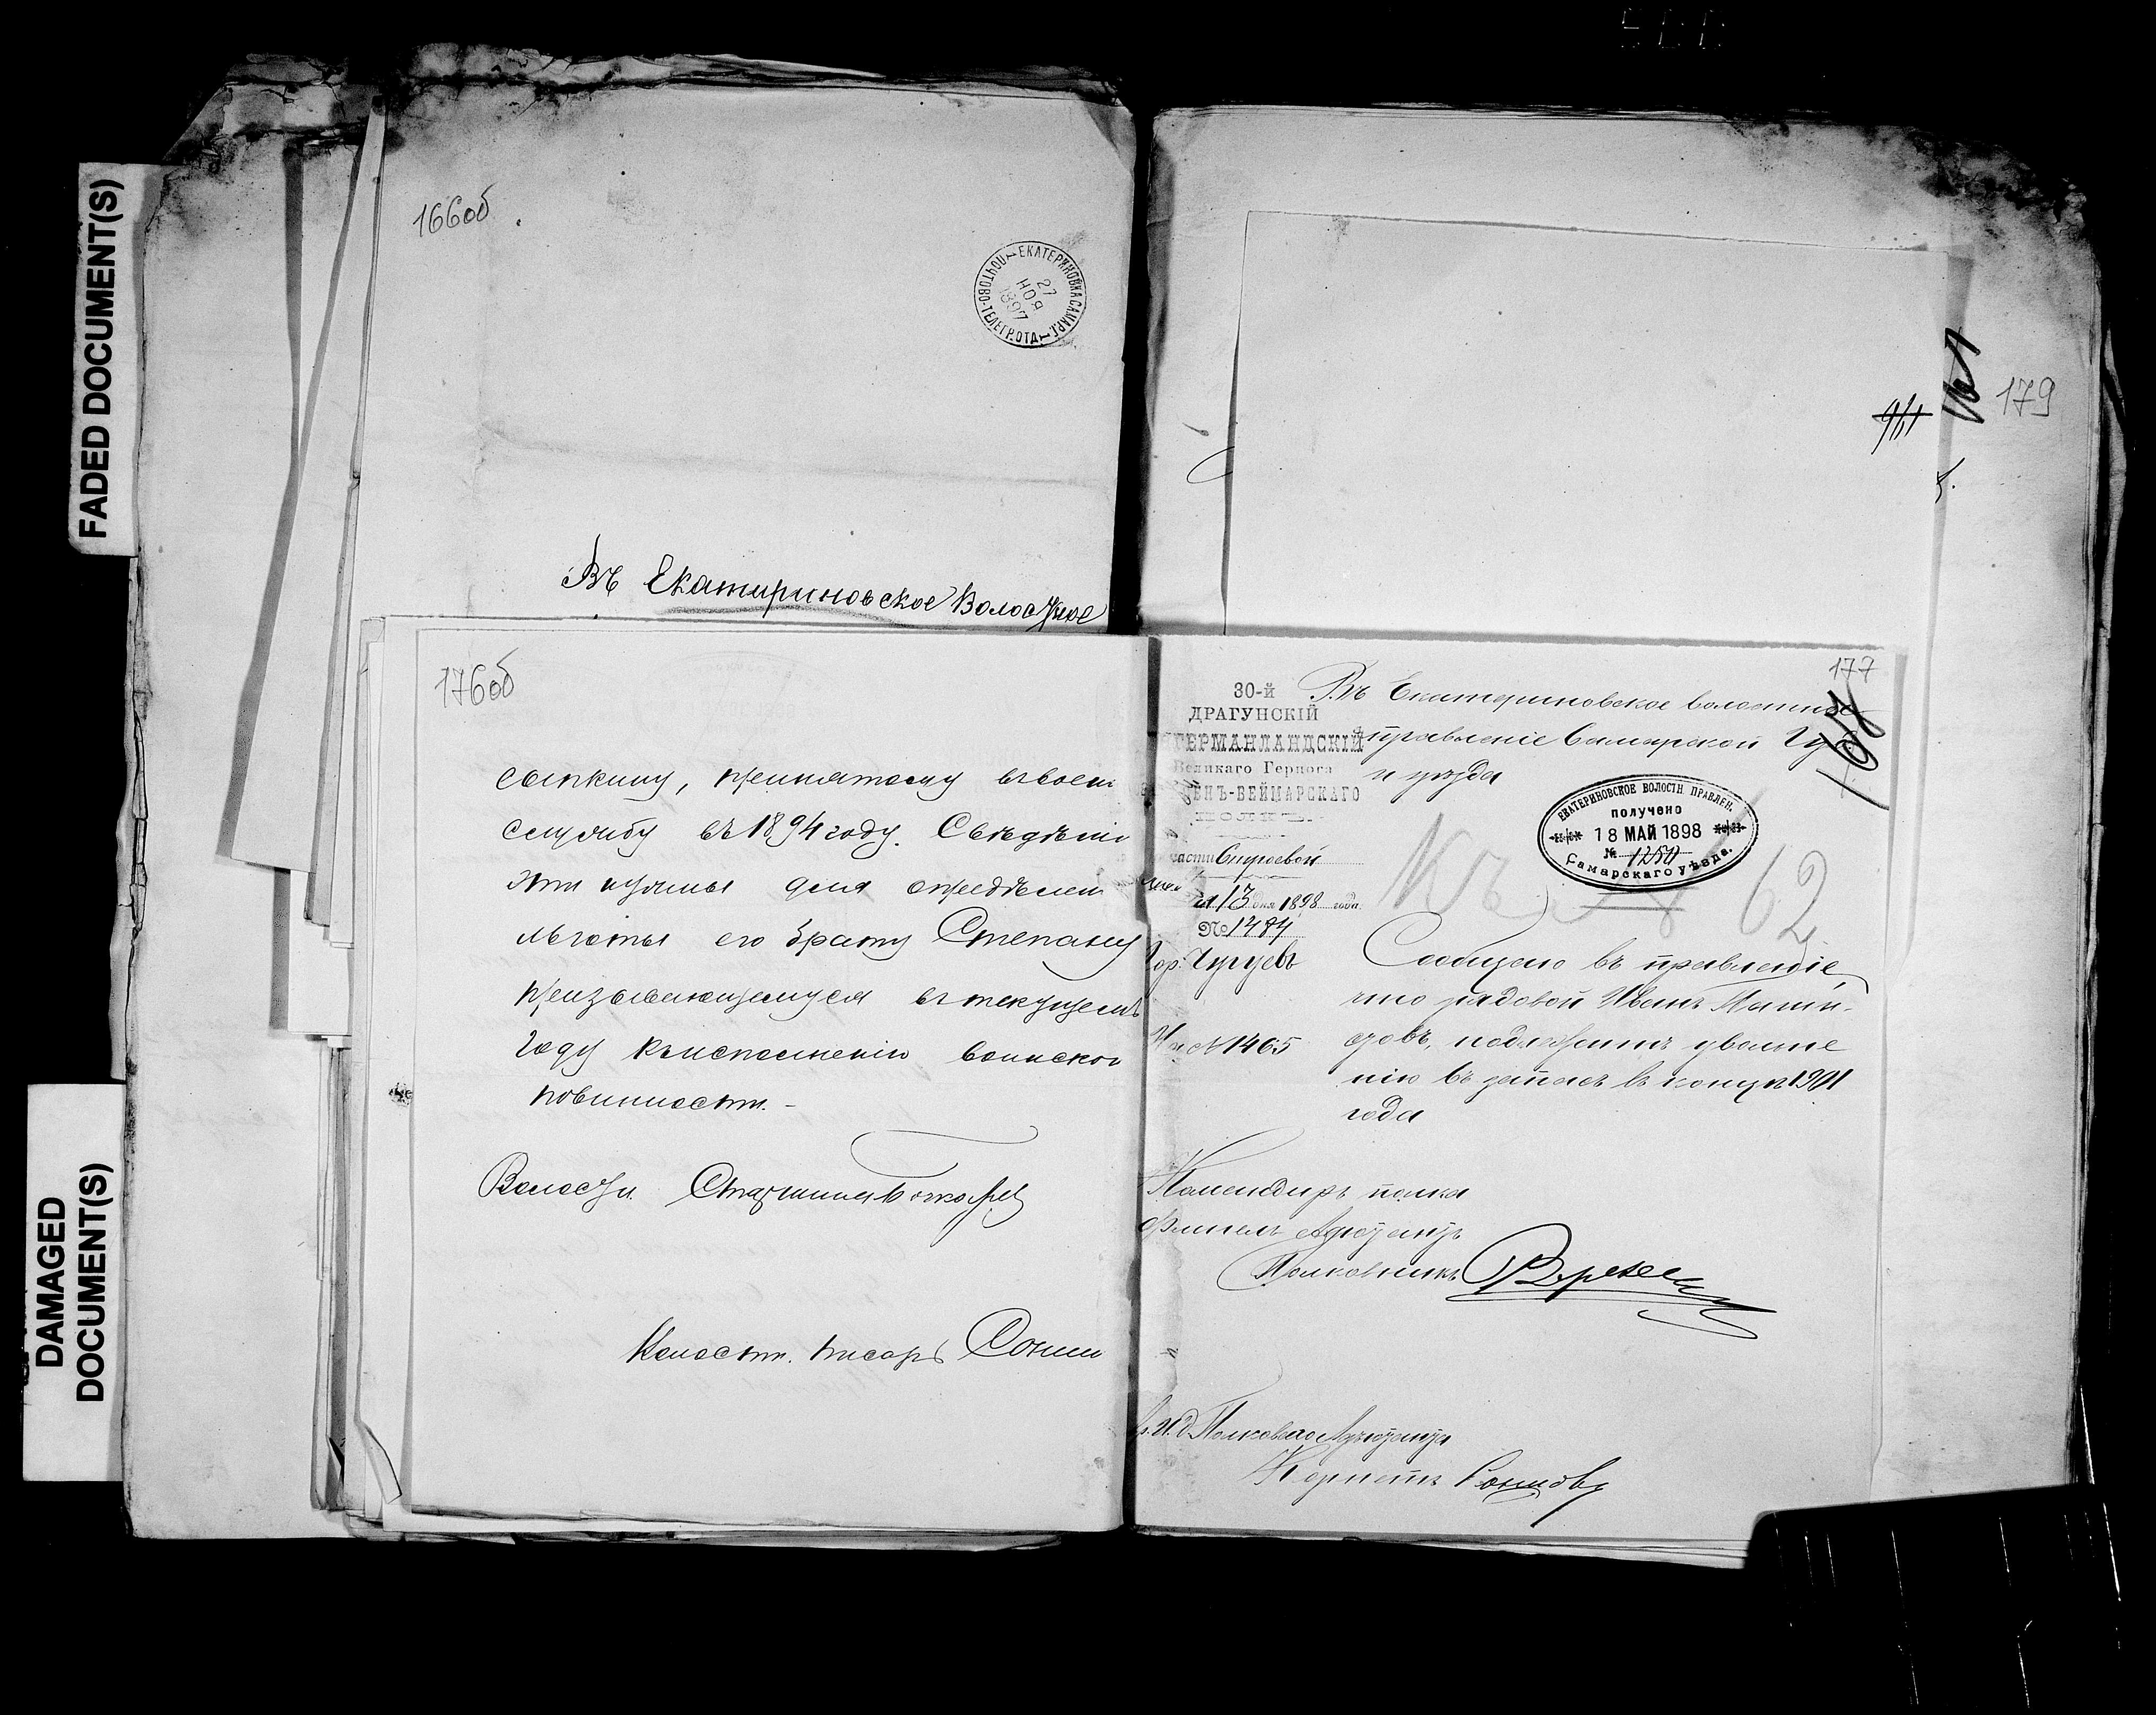 FADED DOCUMENT(S)
DAMAGED
DOCUMENT(S)
166об
ЕКАТЕРИНОВКА САМАР. Г.
ПОЧТОВО-ТЕЛЕГР. ОТД.
27
НОЯ
1897
Въ Екатириновское Волостное
179
176об
сыпкину, принятому въ воен
службу въ 1894 году. Сведѣни
эти нужны для определен
льготы его брату Степану
призывающемуся въ текущемъ
году къ исполнению воинской
повинности.-
Волост. Старшина
Волостн. писарь Сонин
177
30-й
ДРАГУНСКІЙ
ГЕРМАНЛАНДСКІЙ
Великаго Герцога
ЕНЪ-ВЕЙМАРСКАГО
ПОЛКЪ.
части Строевой
13 дня 1898 года.
№ 1484
Гор. Чугуевъ
На № 1465
Въ Екатериновское волостное
правленіе Самарской Губ
и уѣзда
168
ЕКАТЕРИНОВСКОЕ ВОЛОСТН ПРАВЛЕН.
получено
18 МАЙ 1898
№ 1250
Самарскаго уѣзда.
Къ № 62
Сообщаю въ правленіе,
что рядовой Иванъ
подлежитъ увольне
нію въ запасъ въ концѣ 1901
года
Командиръ полка
Флигель Адъютантъ
Полковникъ
И. Д. Полковаго Адъютанта
Корнетъ